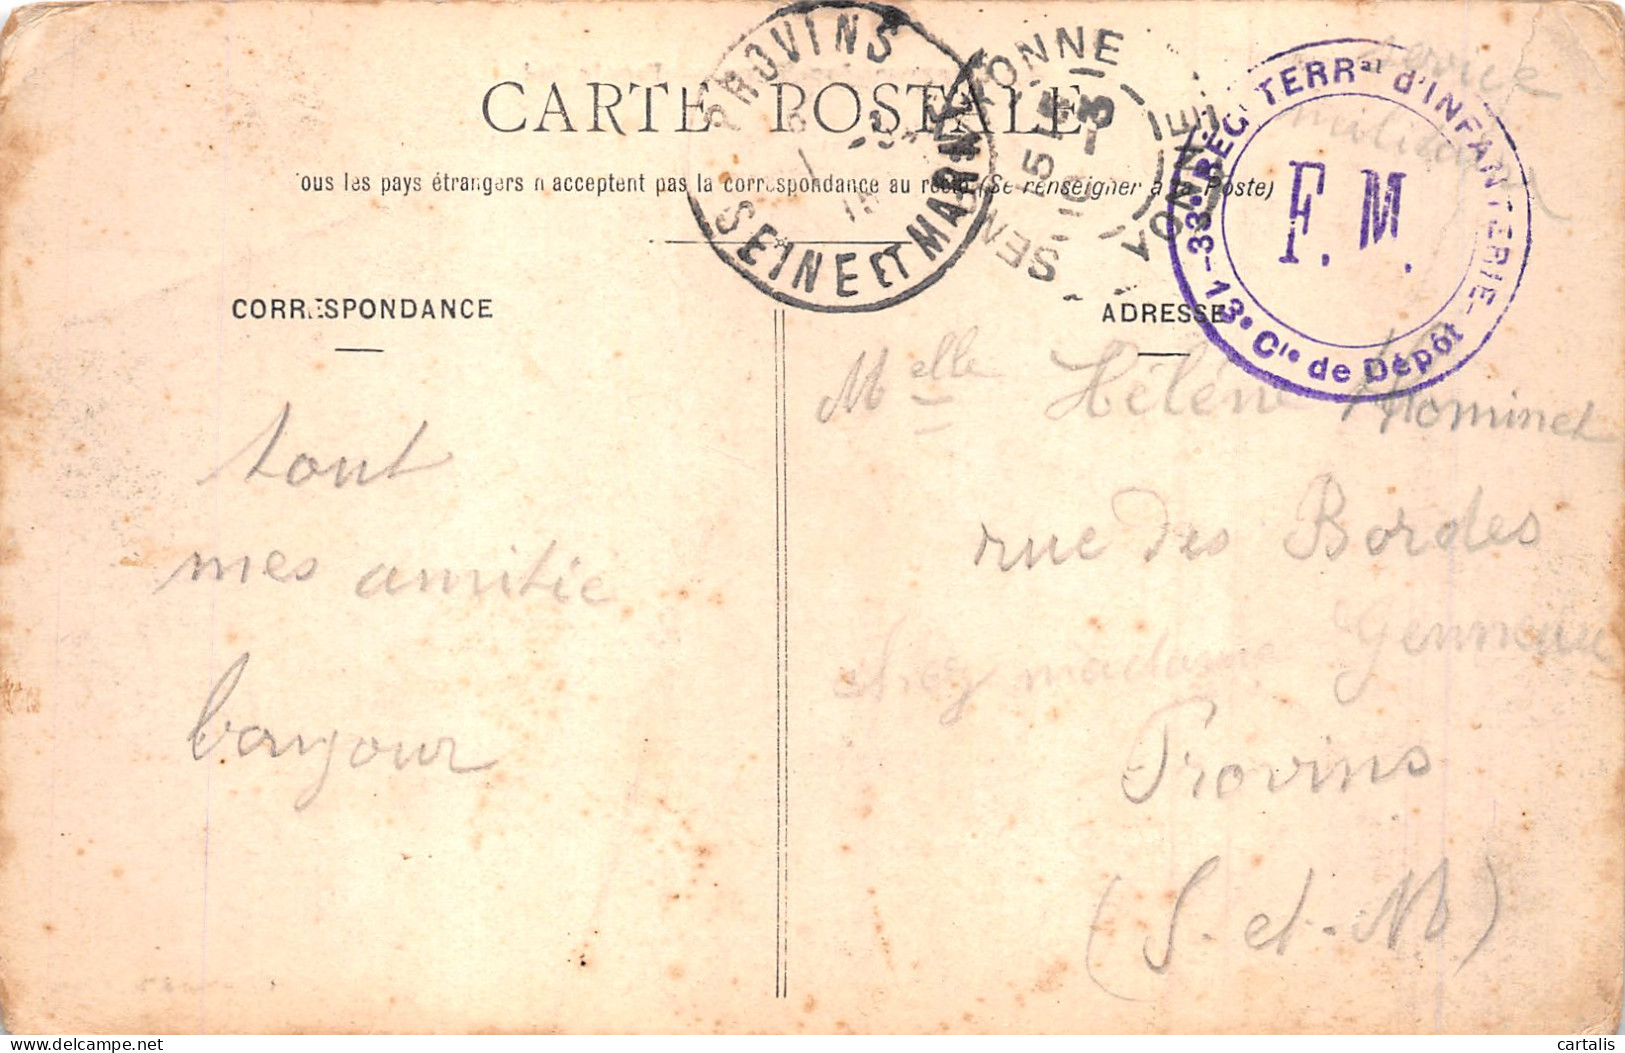 CARTE POSTALE
ous les pays étrangers n'acceptent pas la correspondance au recto (Se renseigner à la Poste)
PROVINS
SEINE ET MARNE
SENS YONNE
YONNE
15 15
-3
33e REGt TERRal d'INFANTERIE
13e Cie de Dépôt
F. M.
service
militaire
CORRESPONDANCE
ADRESSE
tout
mes amitie
bonjour
Melle Hélène
rue des Bordes
chez madame
Provins
(S. et. M)
cartalis
delcampe.net